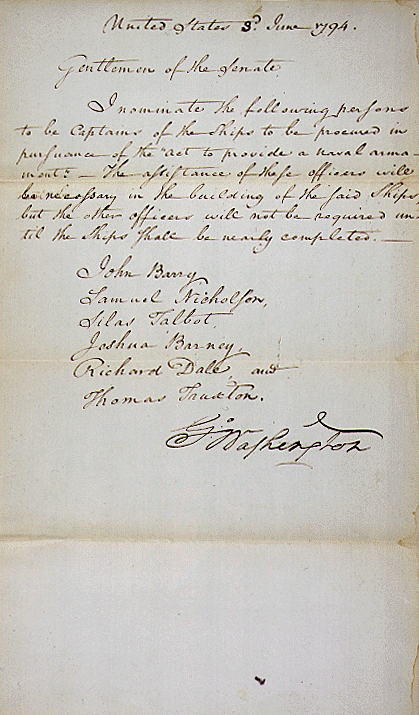 United States 3d. June 1794.
Gentlemen of the Senate,
I nominate the following persons
to be Captains of the Ships to be procured in
pursuance of the "act to provide a naval arma-
ment" — The assistance of these officers will
be necessary in the building of the said Ships,
but the other officers will not be required un-
til the Ships shall be nearly completed. —
John Barry
Samuel Nicholson,
Silas Talbot,
Joshua Barney,
Richard Dale, and
Thomas Truxton.
Go. Washington